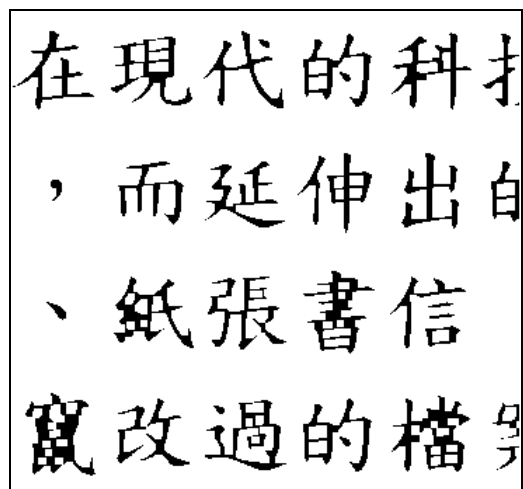 在現代的科
，而延伸出的
、紙張書信
竄改過的檔